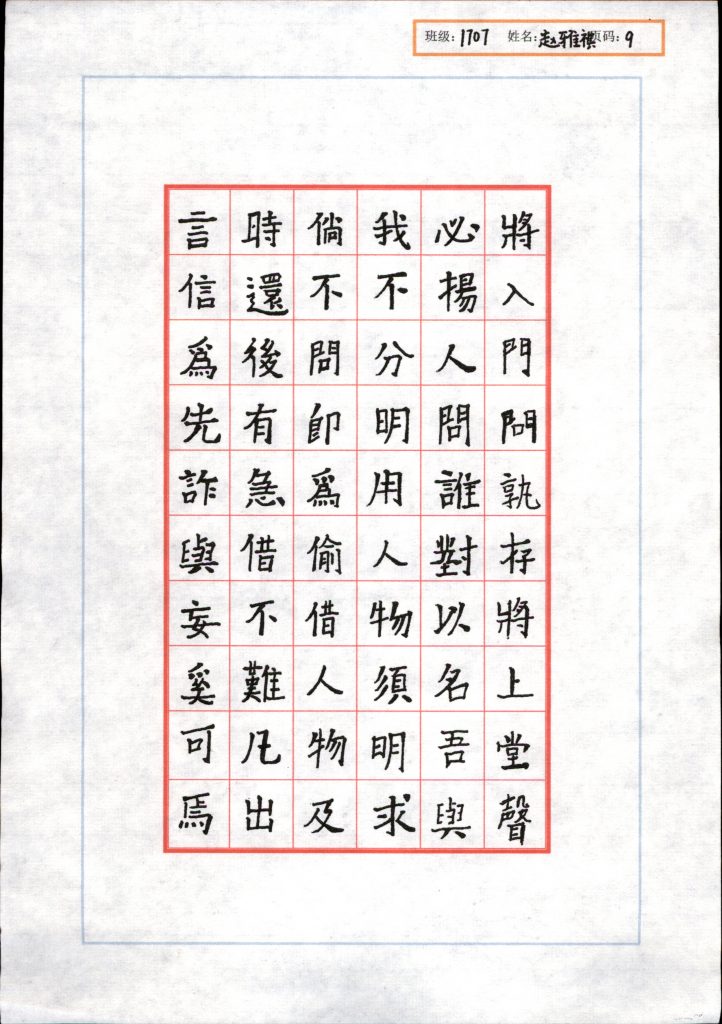 班级: 1707 姓名: 赵雅祺 页码: 9
將入門問孰存將上堂聲
必揚人問誰對以名吾與
我不分明用人物須明求
倘不問即為偷借人物及
時還後有急借不難凡出
言信為先詐與妄奚可焉